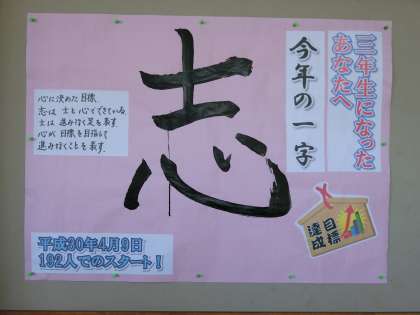 三年生になった
あなたへ
今年の一字
志
心に決めた目標
志は 士と心でできている。
士は 進み行く足を表す。
心が 目標を目指して
進み行くことを 表す。
目標
達成
平成30年4月9日
192人でのスタート！